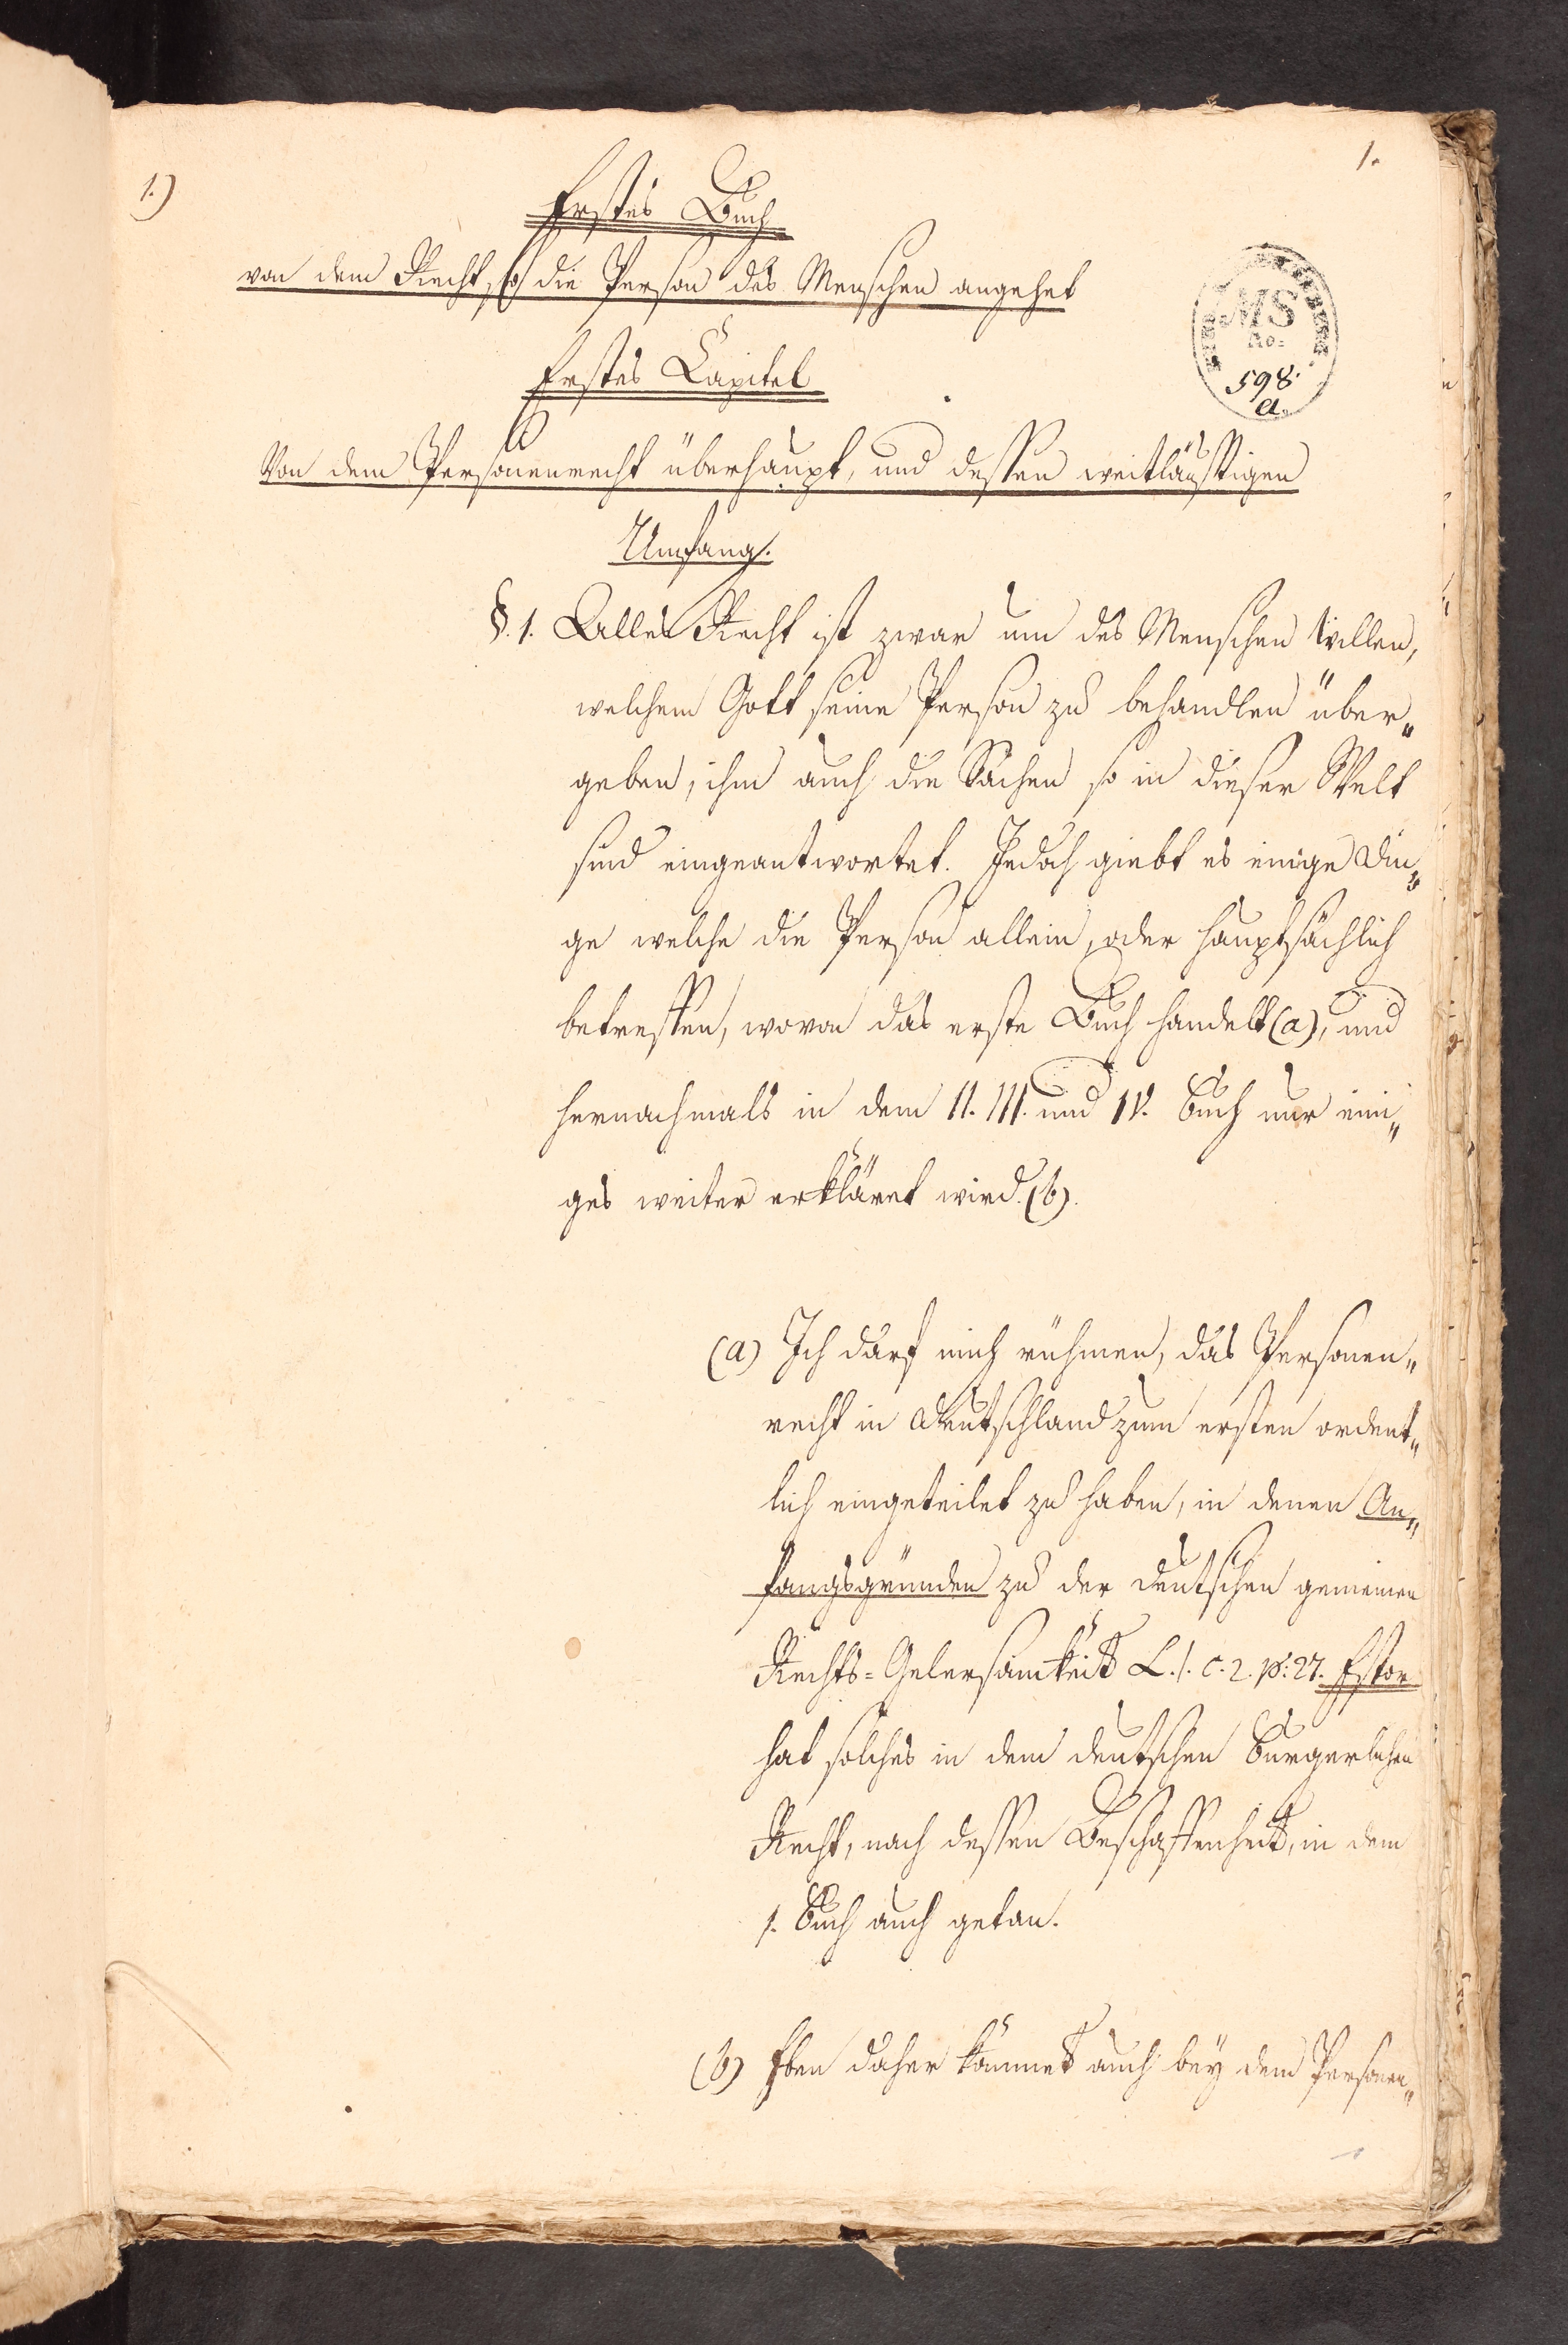 1.
1.)
Erstes Buch
von dem Recht, so die Person des Menschen angehet
MS
No:
598.
a.
Erstes Capitel
Von dem Personenrecht überhaupt, und dessen weitläuftigen
Umfang.
§. 1. Alles Recht ist zwar um des Menschen willen,
welchem Gott seine Person zu behandlen über„
geben, ihm auch die Sachen so in dieser Welt
sind eingeantwortet. Jedoch giebt es einige Din„
ge welche die Person allein, oder hauptsächlich
betreffen, wovon das erste Buch handelt (a), und
hernachmals in dem II. III. und IV. Buch nur eini„
ges weiter erkläret wird. (b).
(a) Ich darf mich rühmen, das Personen„
recht in Deutschland zum ersten ordent„
lich eingeteilet zu haben, in denen An„
fangsgründen zu der deutschen gemeinen
Rechts=Gelersamkeit L. 1. c. 2. p: 27. Estor
hat solches in dem deutschen bürgerlichen
Recht, nach dessen Beschaffenheit, in dem
1. Buch auch getan.
(b) Eben daher kommet auch bey dem Personen„